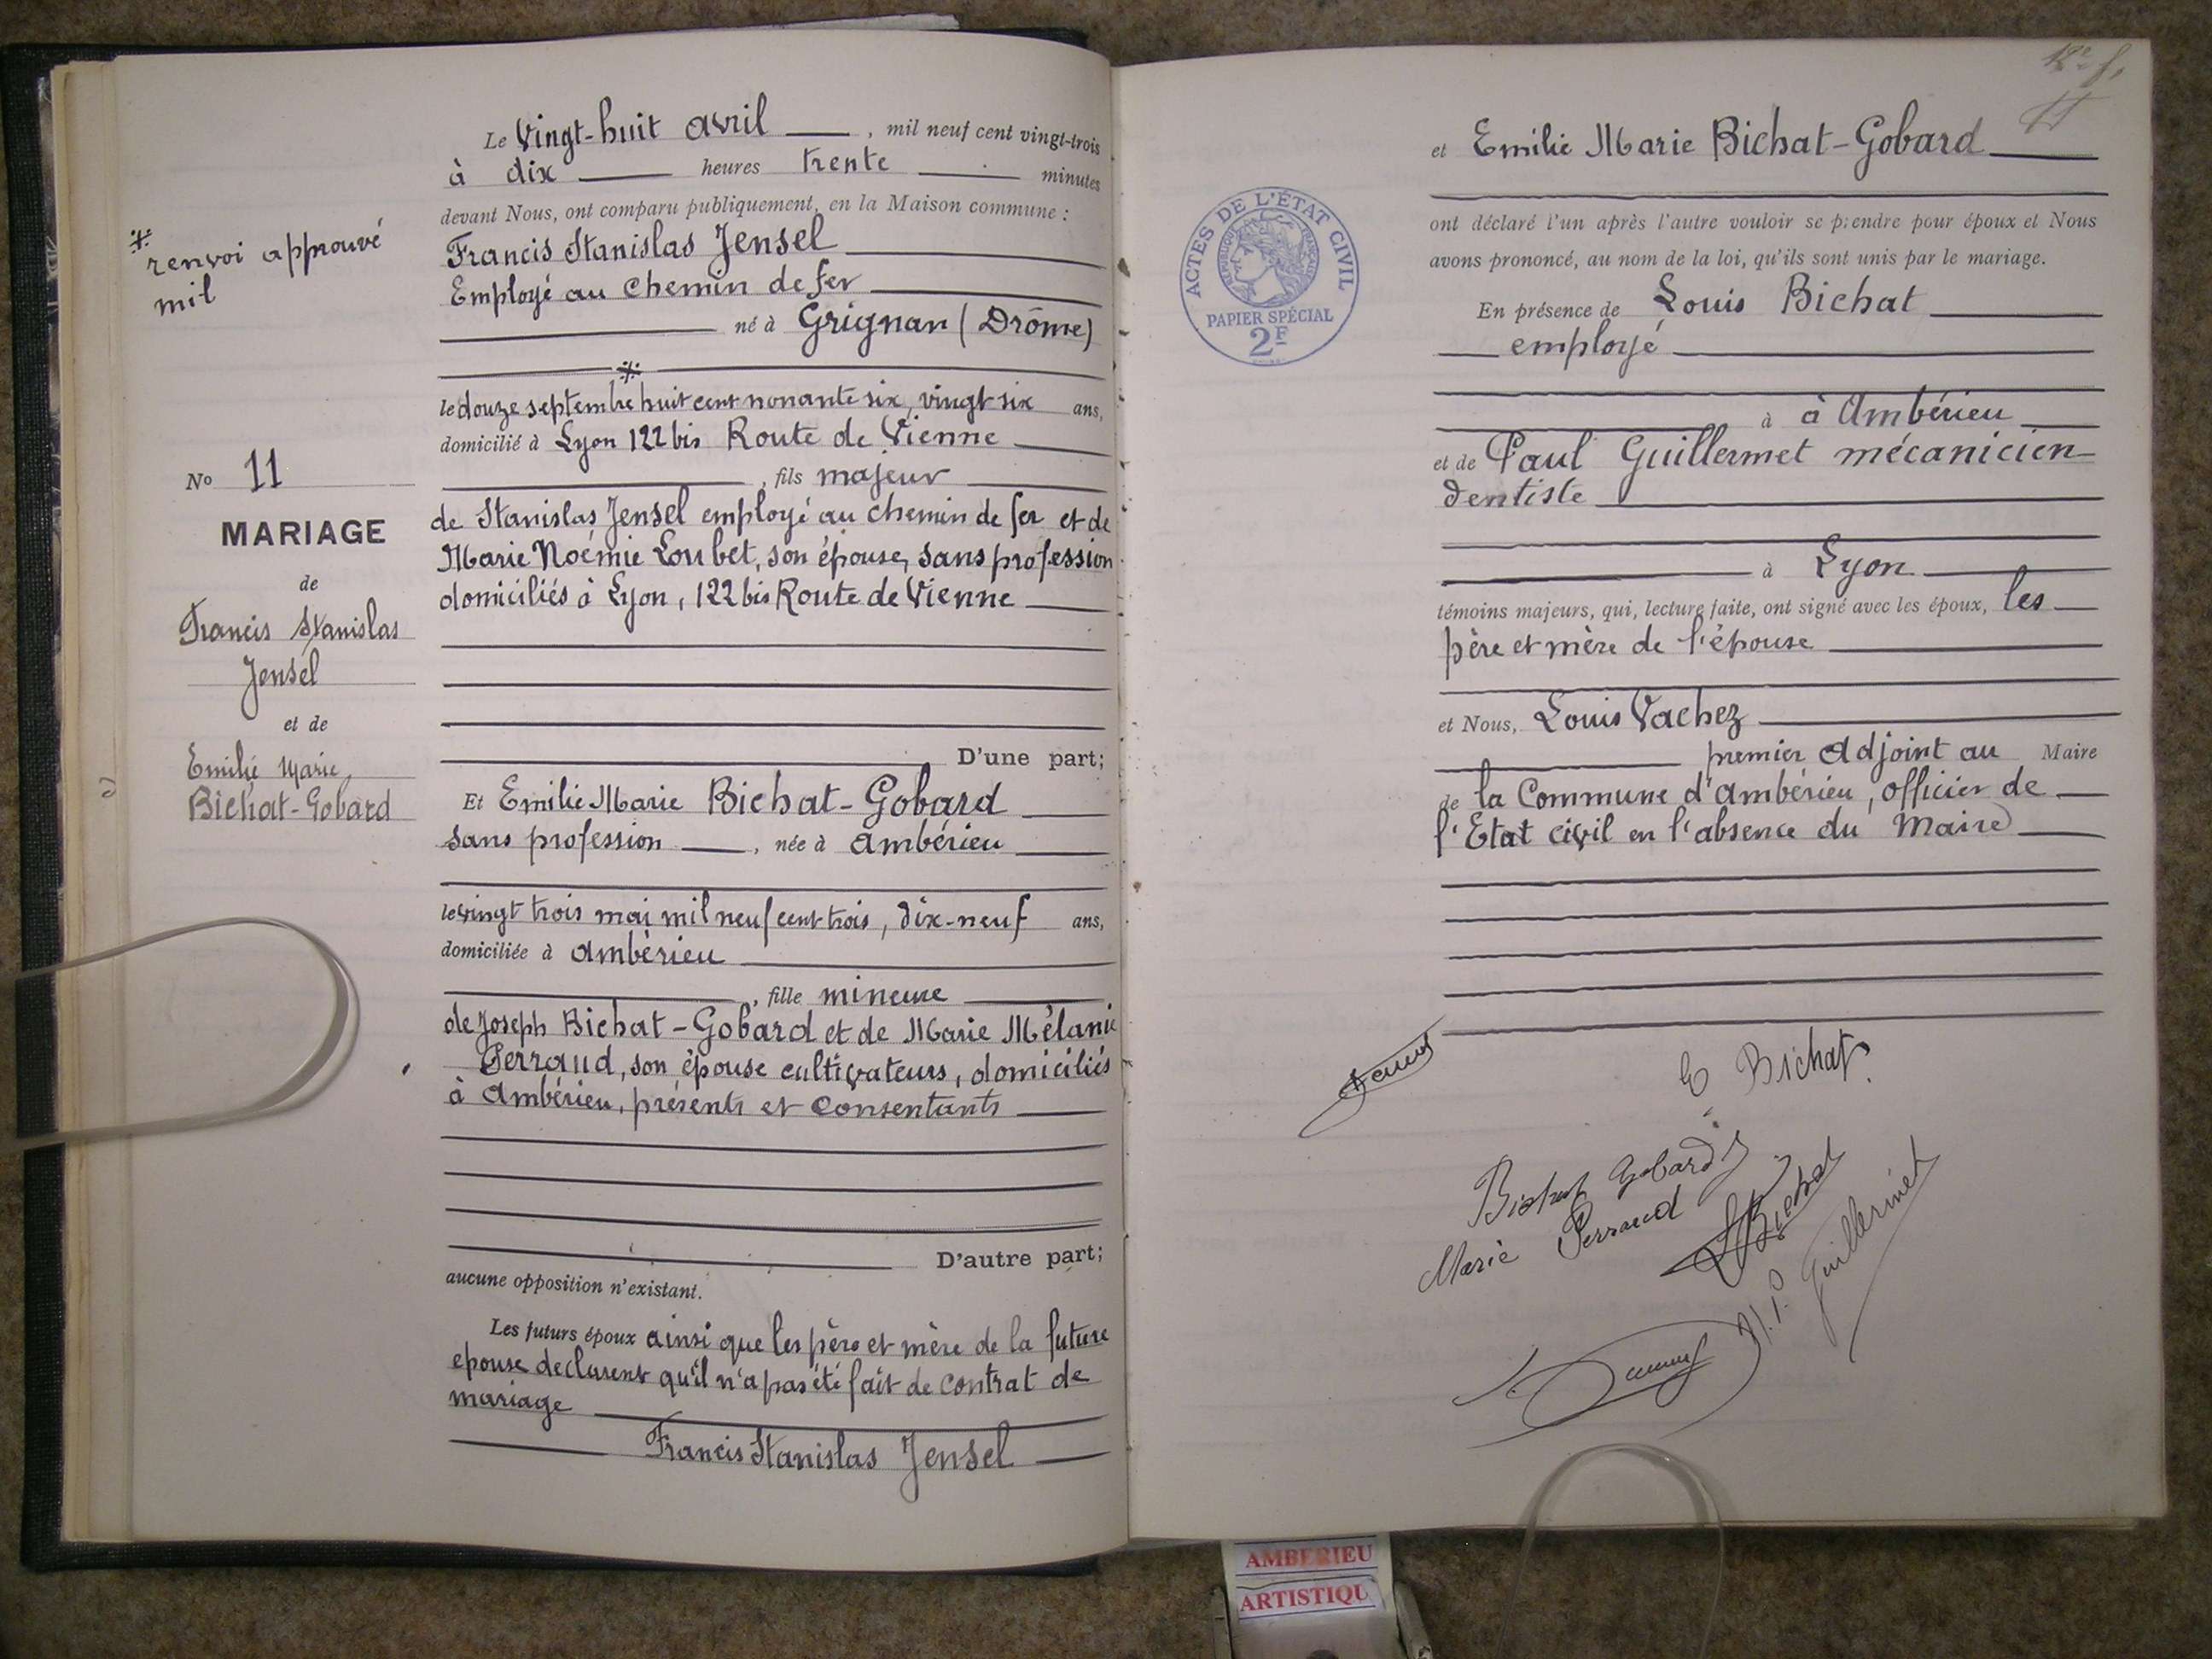 ※
renvoi approuvé
mil
No 11
MARIAGE
de
Francis Stanislas
Jensel
et de
Emilie Marie
Bichat-Gobard
Le Vingt-huit avril , mil neuf cent vingt-trois
à dix heures trente minutes
devant Nous, ont comparu publiquement, en la Maison commune :
Francis Stanislas Jensel
Employé au chemin de fer
né à Grignan (Drôme)
※
le douze septembre huit cent nonante six, vingt six ans,
domicilié à Lyon 122 bis Route de Vienne
, fils majeur
de Stanislas Jensel employé au chemin de fer et de
Marie Noémie Loubet, son épouse, sans profession
domiciliés à Lyon, 122 bis Route de Vienne
D'une part;
Et Emilie Marie Bichat-Gobard
sans profession , née à Ambérieu
le vingt trois mai mil neuf cent trois, dix-neuf ans,
domiciliée à Ambérieu
, fille mineure
de Joseph Bichat-Gobard et de Marie Mélanie
Perraud, son épouse cultivateurs, domiciliés
à Ambérieu, présents et consentants
D'autre part;
aucune opposition n'existant.
Les futurs époux ainsi que les père et mère de la future
epouse declarent qu'il n'a pas été fait de contrat de
mariage
Francis Stanislas Jensel
et Emilie Marie Bichat-Gobard
ont déclaré l'un après l'autre vouloir se prendre pour époux et Nous
avons prononcé, au nom de la loi, qu'ils sont unis par le mariage.
ACTES DE L'ÉTAT CIVIL
RÉPUBLIQUE FRANÇAISE
PAPIER SPÉCIAL
2F
En présence de Louis Bichat
employé
à à Ambérieu
et de Paul Guillermet mécanicien-
dentiste
à Lyon
témoins majeurs, qui, lecture faite, ont signé avec les époux, les
père et mère de l'épouse
et Nous, Louis Vachez
premier Adjoint au Maire
de la Commune d'Ambérieu, officier de
l'Etat civil en l'absence du Maire
E Bichat
Bichat Gobard
Marie Perraud
LBichat
P. Guillermet
AMBERIEU
ARTISTIQU